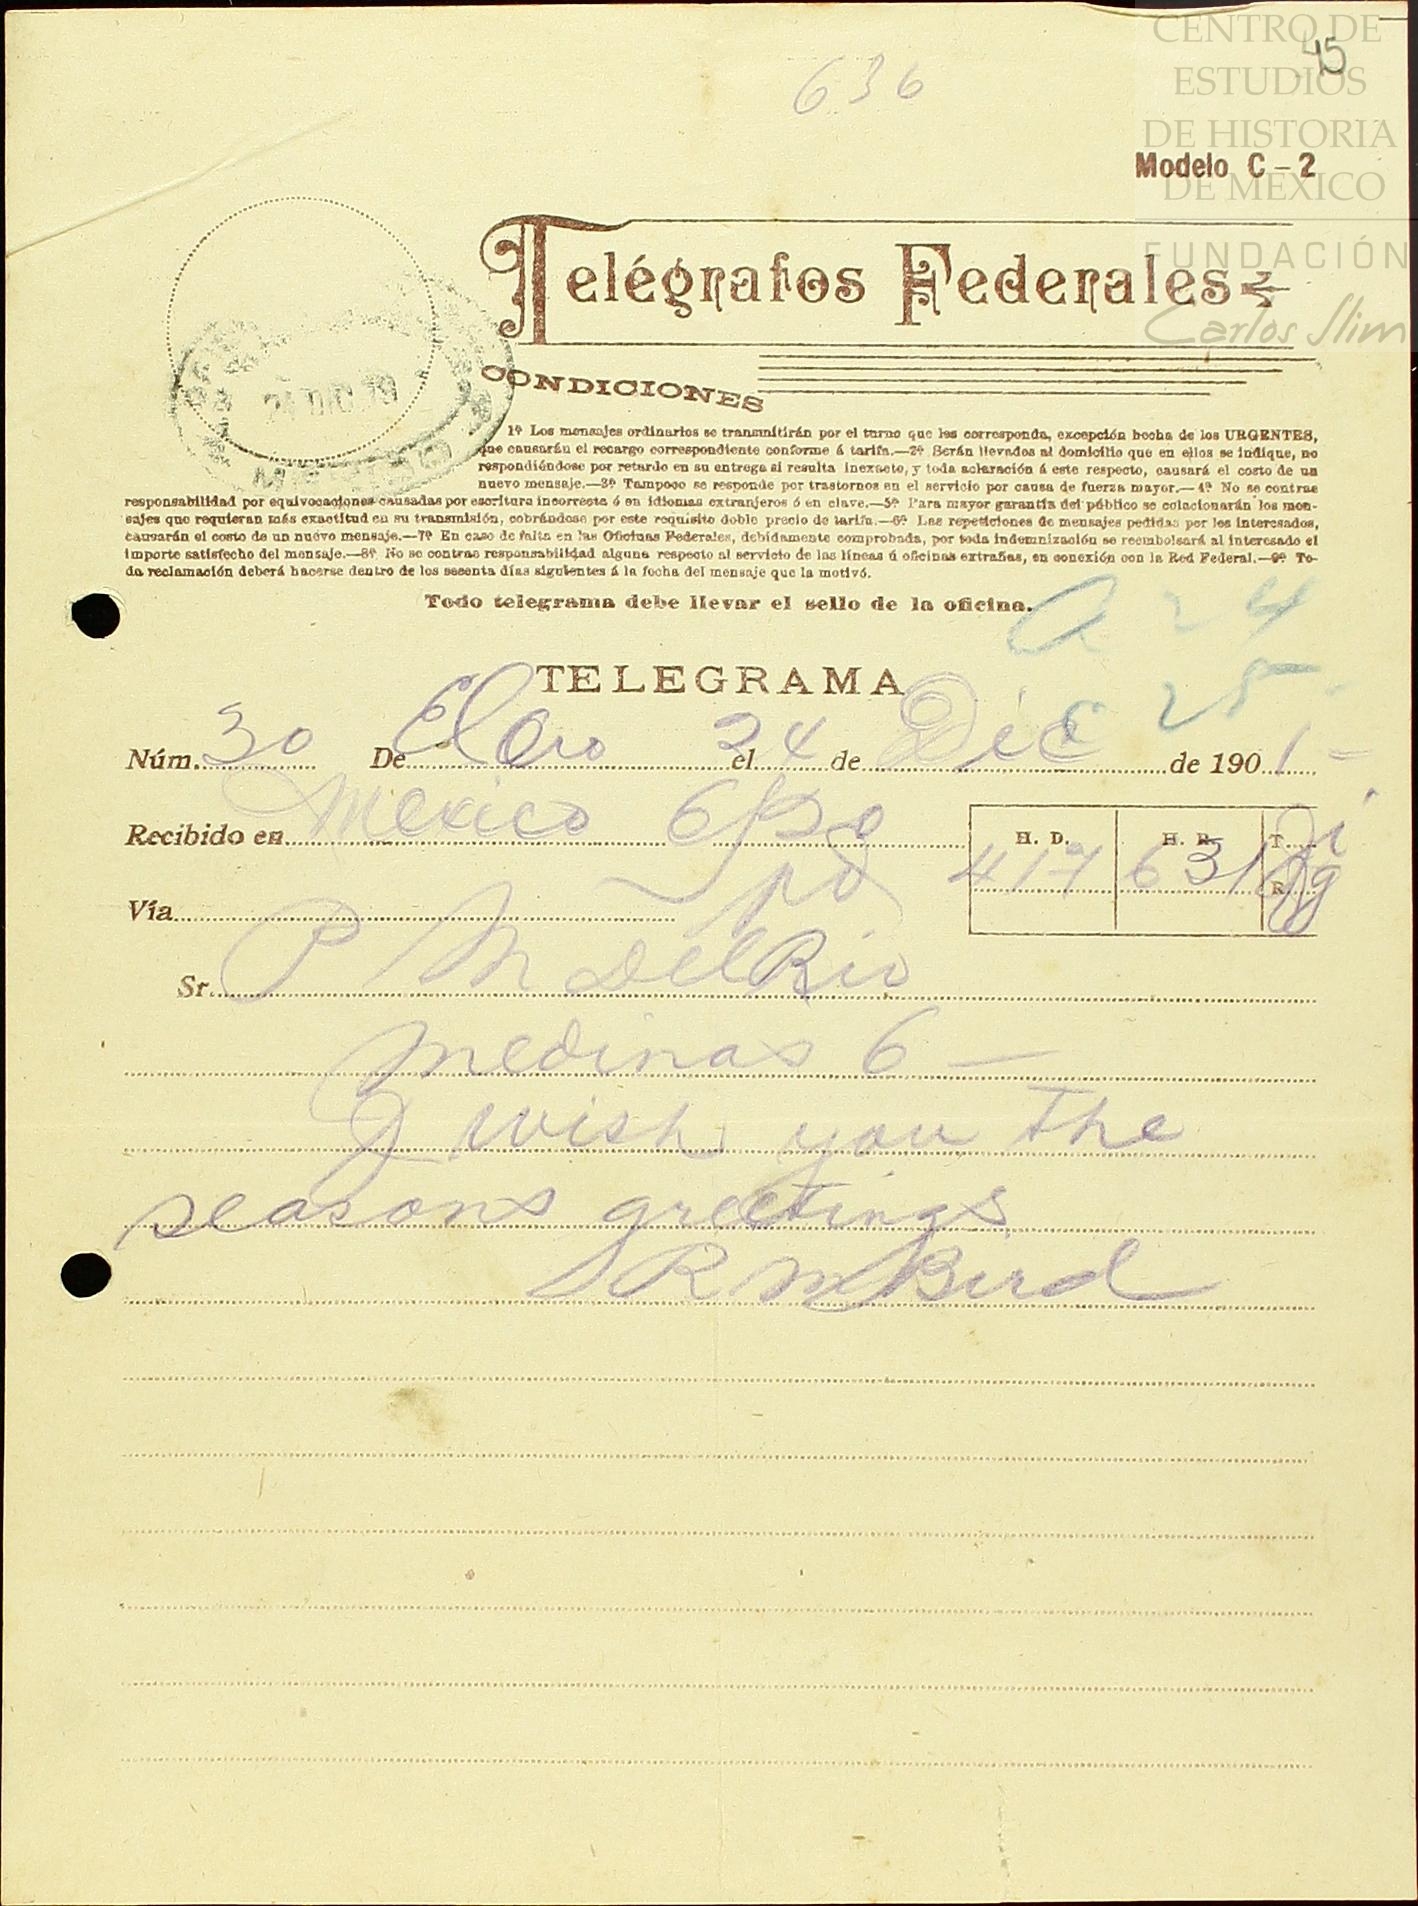 CENTRO DE
ESTUDIOS
DE HISTORIA
DE MÉXICO
FUNDACIÓN
Carlos Slim
45
636
Modelo C-2
Telégrafos Federales
CONDICIONES
1ª Los mensajes ordinarios se transmitirán por el turno que les corresponda, excepción hecha de los URGENTES,
que causarán el recargo correspondiente conforme á tarifa.—2ª Serán llevados al domicilio que en ellos se indique, no
respondiéndose por retardo en su entrega si resulta inexacto, y toda aclaración á este respecto, causará el costo de un
nuevo mensaje.—3ª Tampoco se responde por trastornos en el servicio por causa de fuerza mayor.—4ª No se contrae
responsabilidad por equivocaciones causadas por escritura incorrecta ó en idiomas extranjeros ó en clave.—5ª Para mayor garantía del público se colacionarán los men-
sajes que requieran más exactitud en su transmisión, cobrándose por este requisito doble precio de tarifa.—6ª Las repeticiones de mensajes pedidas por los interesados,
causarán el costo de un nuevo mensaje.—7ª En caso de falta en las Oficinas Federales, debidamente comprobada, por toda indemnización se reembolsará al interesado el
importe satisfecho del mensaje.—8ª No se contrae responsabilidad alguna respecto al servicio de las líneas ú oficinas extrañas, en conexión con la Red Federal.—9ª To-
da reclamación deberá hacerse dentro de los sesenta días siguientes á la fecha del mensaje que la motivó.
Todo telegrama debe llevar el sello de la oficina.
a 24
TELEGRAMA
c 25
Núm. 30 De El Oro el 24 de Dic de 190 1-
Recibido en Mexico 6 H. D. H. R. T.
417 631 R.
Vía pd
Sr. P M Del Rio
Medinas 6 —
I wish you the
seasons greetings
R M Bird